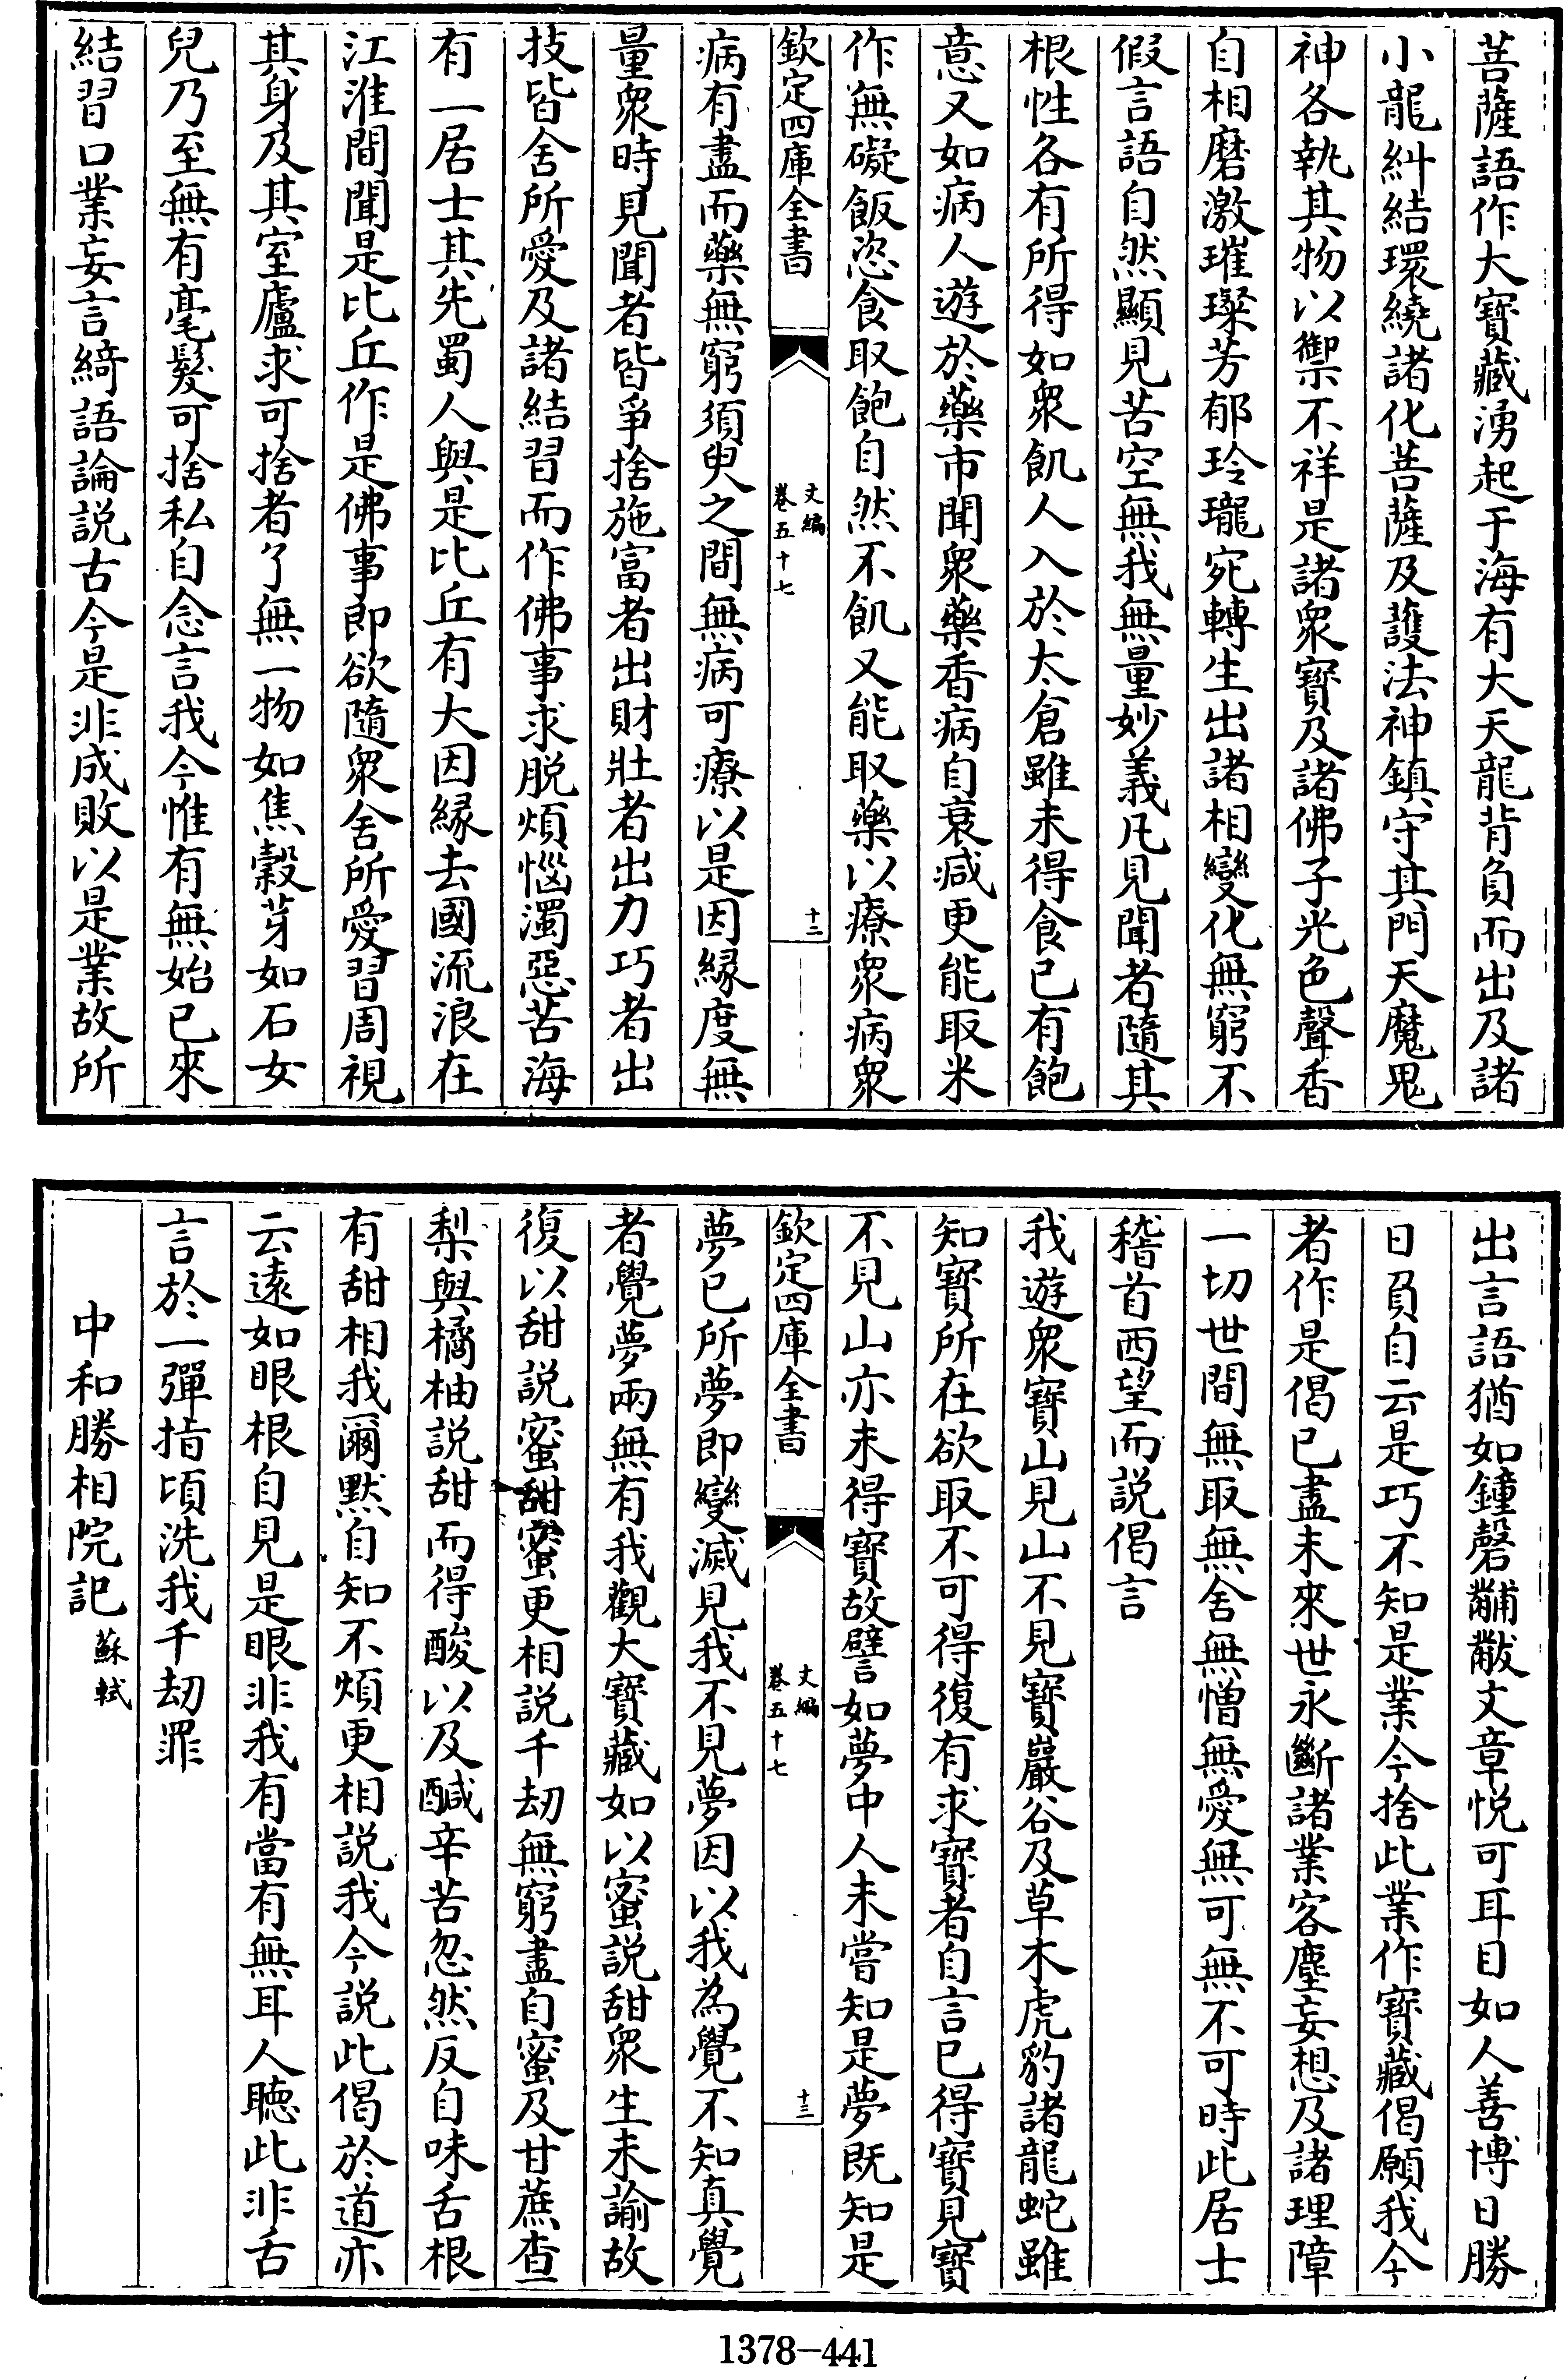 菩薩語作大寳藏湧起于海有大天龍背負而出及諸
小龍糾結環繞諸化菩薩及護法神鎮守其門天魔鬼
神各執其物以禦不祥是諸衆寳及諸佛子光色聲香
自相磨激璀璨芳郁玲瓏宛轉生出諸相變化無窮不
假言語自然顯見苦空無我無量妙義凡見聞者隨其
根性各有所得如衆飢人入於太倉雖未得食已有飽
意又如病人遊於藥市聞衆藥香病自衰减更能取米
作無礙飯恣食取飽自然不飢又能取藥以療衆病衆
欽定四庫全書
文編
卷五十七
十二
病有盡而藥無窮須臾之間無病可療以是因縁度無
量衆時見聞者皆爭捨施富者出財壯者出力巧者出
技皆舍所愛及諸結習而作佛事求脱煩惱濁惡苦海
有一居士其先蜀人與是比丘有大因縁去國流浪在
江淮間聞是比丘作是佛事即欲隨衆舍所愛習周視
其身及其室廬求可捨者了無一物如焦穀芽如石女
兒乃至無有毫髮可捨私自念言我今惟有無始已來
結習口業妄言綺語論説古今是非成敗以是業故所
出言語猶如鐘磬黼黻文章悦可耳目如人善博日勝
日負自云是巧不知是業今捨此業作寳藏偈願我今
者作是偈已盡未來世永斷諸業客塵妄想及諸理障
一切世間無取無舍無憎無愛無可無不可時此居士
稽首西望而説偈言
我遊衆寳山見山不見寳巖谷及草木虎豹諸龍蛇雖
知寳所在欲取不可得復有求寳者自言已得寳見寳
不見山亦未得寳故譬如夢中人未嘗知是夢既知是
欽定四庫全書
文編
卷五十七
十三
夢已所夢即變滅見我不見夢因以我為覺不知真覺
者覺夢兩無有我觀大寳藏如以蜜説甜衆生未諭故
復以甜説蜜甜蜜更相説千劫無窮盡自蜜及甘蔗查
梨與橘柚説甜而得酸以及醎辛苦忽然反自味舌根
有甜相我爾黙自知不煩更相説我今説此偈於道亦
云遠如眼根自見是眼非我有當有無耳人聽此非舌
言於一彈指頃洗我千劫罪
中和勝相院記 蘇軾
1378-441